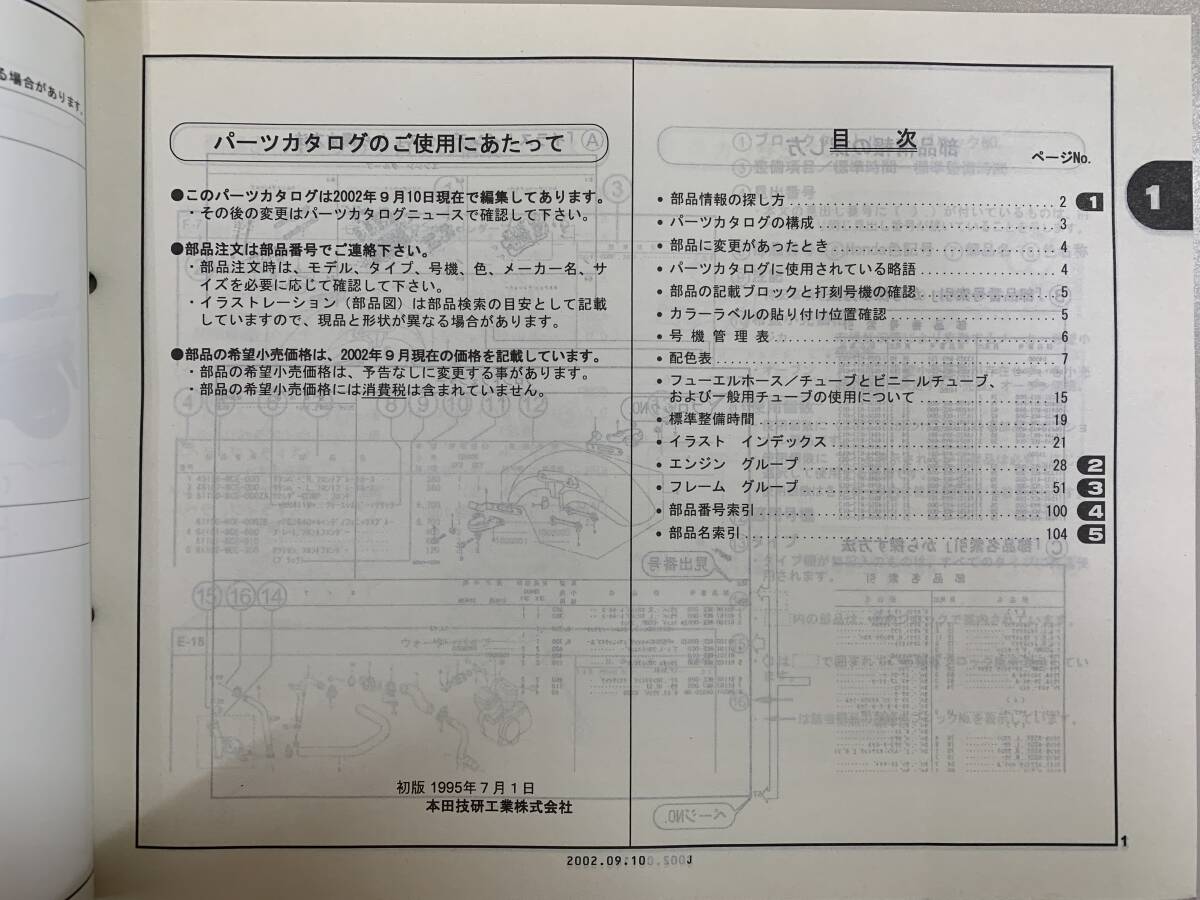 る場合があります。
パーツカタログのご使用にあたって
●このパーツカタログは2002年9月10日現在で編集してあります。
・その後の変更はパーツカタログニュースで確認して下さい。
●部品注文は部品番号でご連絡下さい。
・部品注文時は、モデル、タイプ、号機、色、メーカー名、サ
イズを必要に応じて確認して下さい。
・イラストレーション（部品図）は部品検索の目安として記載
していますので、現品と形状が異なる場合があります。
●部品の希望小売価格は、2002年9月現在の価格を記載しています。
・部品の希望小売価格は、予告なしに変更する事があります。
・部品の希望小売価格には消費税は含まれていません。
初版 1995年7月1日
本田技研工業株式会社
目　次
ページNo.
• 部品情報の探し方 2 1
• パーツカタログの構成 3
• 部品に変更があったとき 4
• パーツカタログに使用されている略語 4
• 部品の記載ブロックと打刻号機の確認 5
• カラーラベルの貼り付け位置確認 5
• 号機管理表 6
• 配色表 7
• フューエルホース／チューブとビニールチューブ、
および一般用チューブの使用について 15
• 標準整備時間 19
• イラスト　インデックス 21
• エンジン　グループ 28 2
• フレーム　グループ 51 3
• 部品番号索引 100 4
• 部品名索引 104 5
1
1
2002.09.10 J